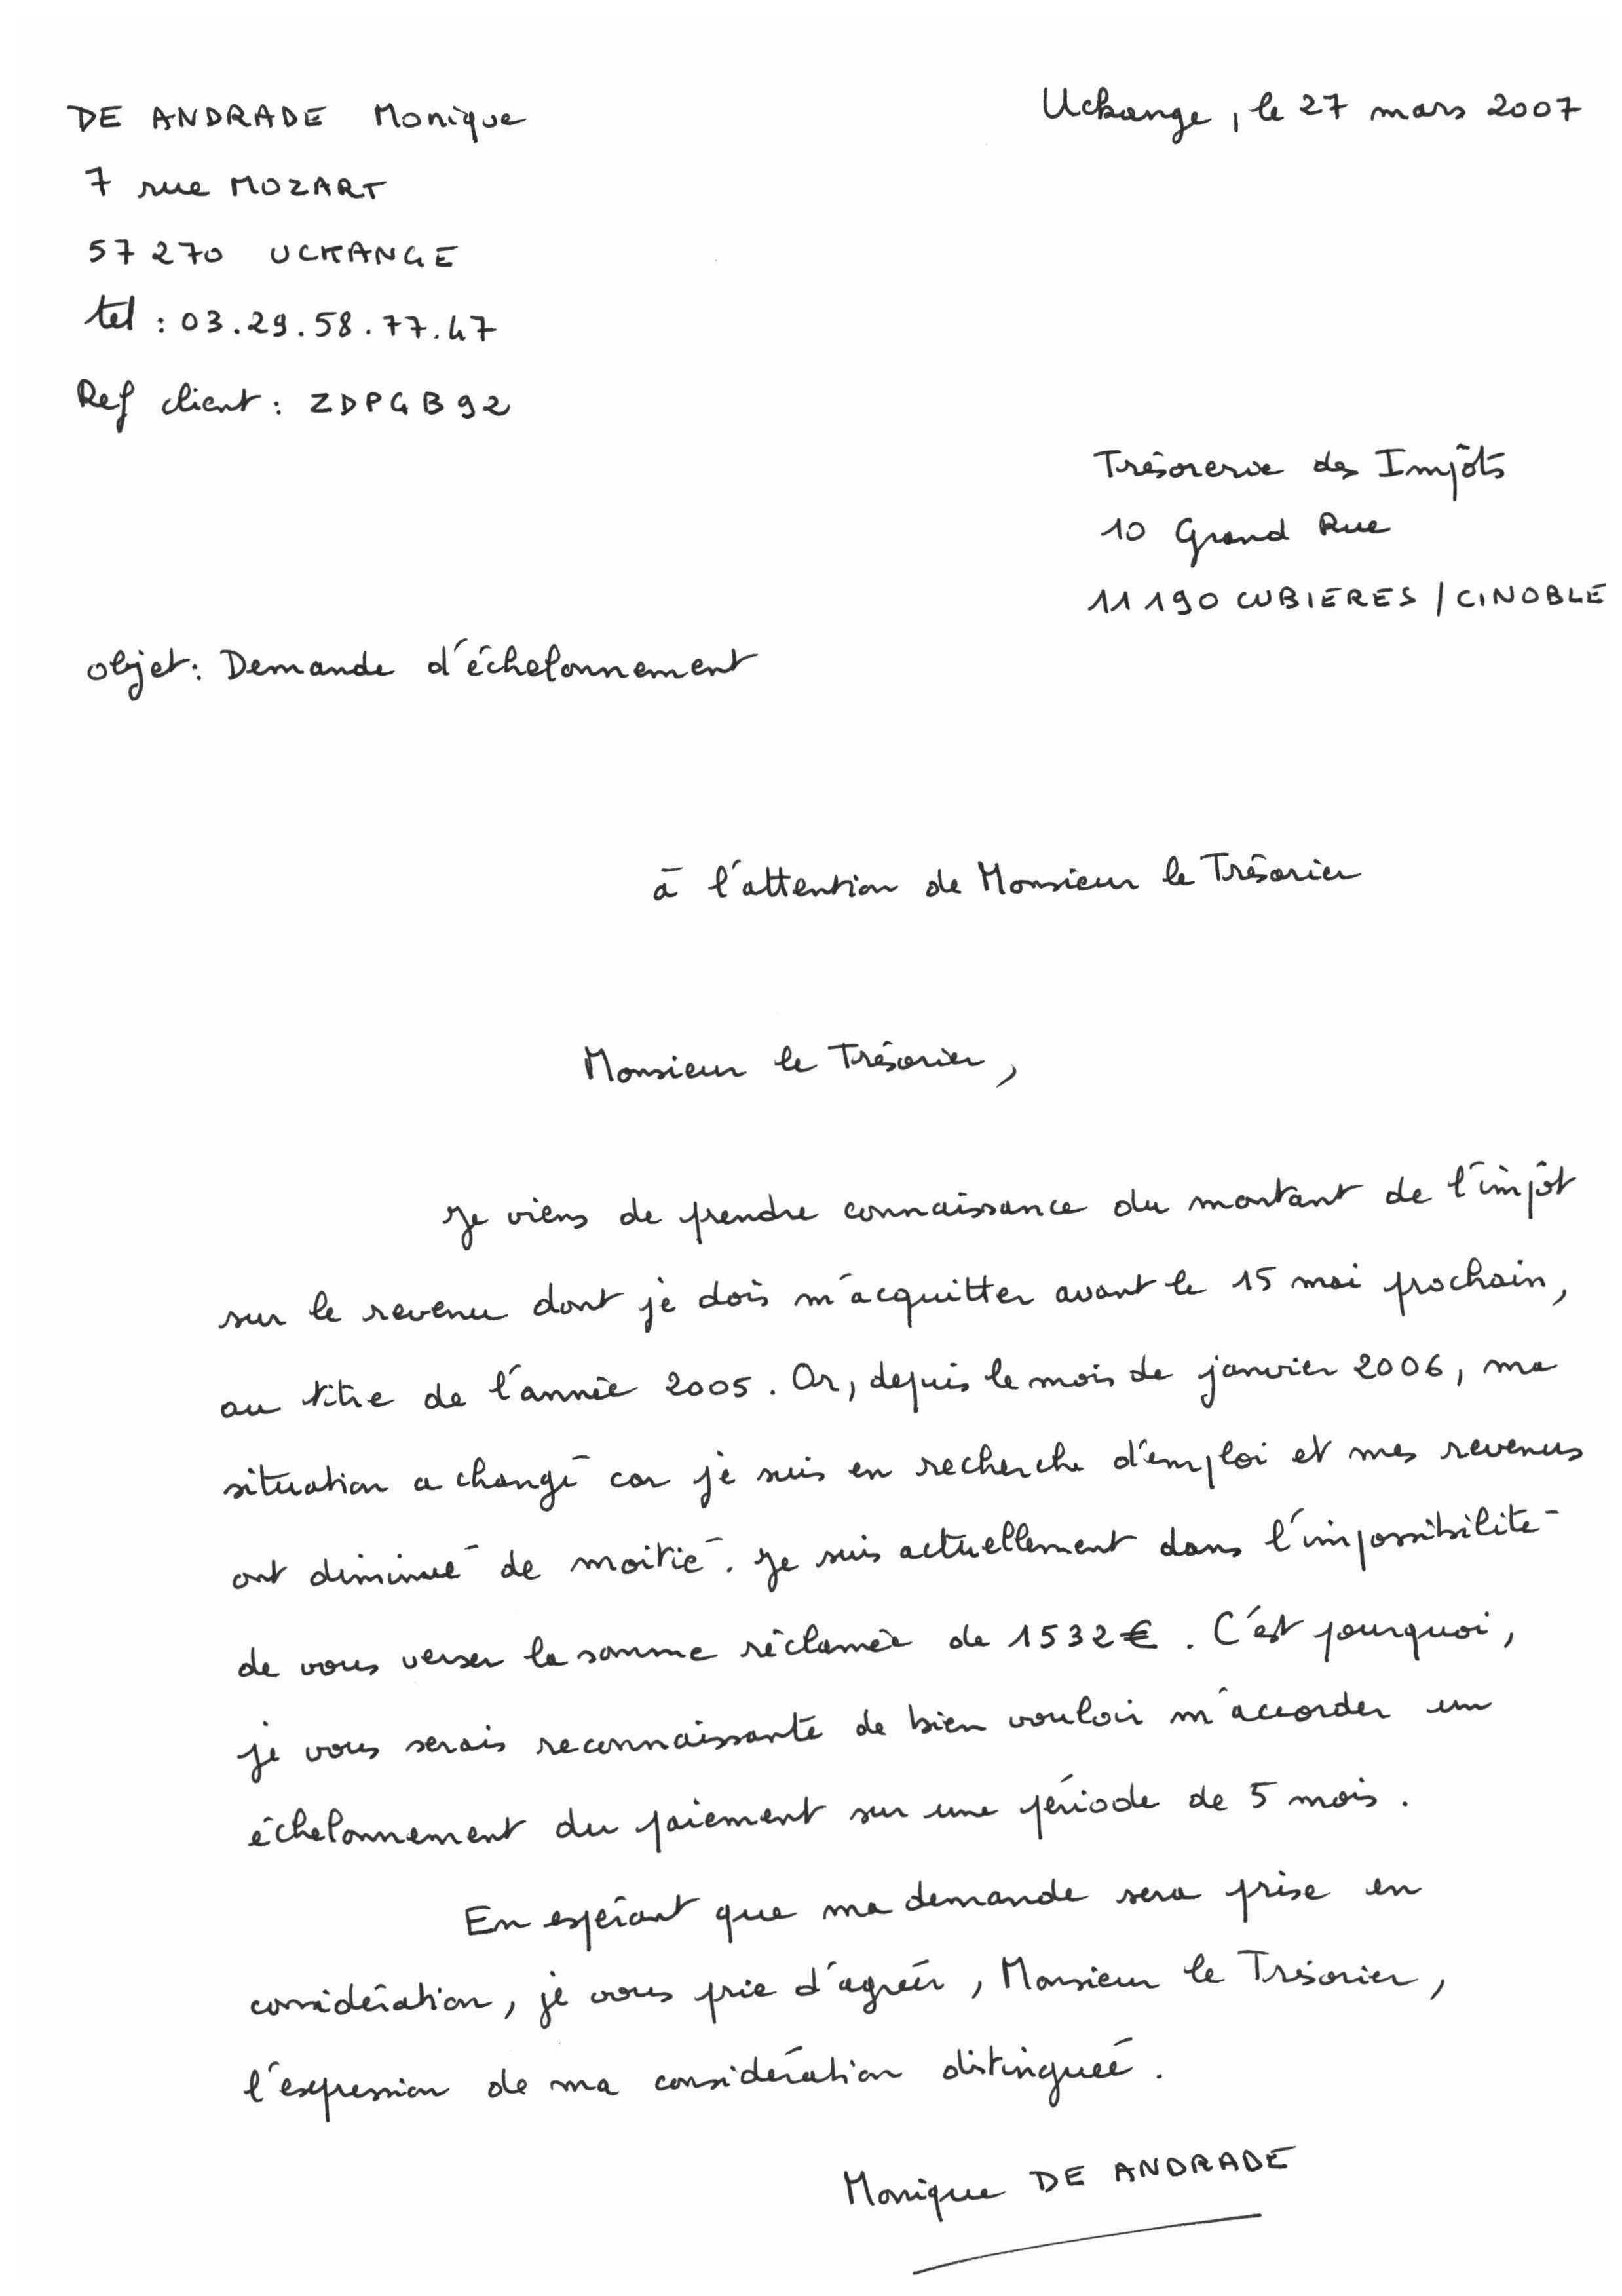 DE ANDRADE Monique
Uckange, le 27 mars 2007
7 rue MOZART
57 270 UCKANGE
tel : 03.29.58.77.47
Ref client : ZDPGB92
Trésorerie des Impôts
10 Grand Rue
11 190 CUBIERES / CINOBLE
objet : Demande d'échelonnement
à l'attention de Monsieur le Trésorier
Monsieur le Trésorier,
Je viens de prendre connaissance du montant de l'impôt
sur le revenu dont je dois m'acquitter avant le 15 mai prochain,
au titre de l'année 2005. Or, depuis le mois de janvier 2006, ma
situation a changé car je suis en recherche d'emploi et mes revenus
ont diminué de moitié. Je suis actuellement dans l'impossibilité
de vous verser la somme réclamée de 1532€. C'est pourquoi,
je vous serais reconnaissante de bien vouloir m'accorder un
échelonnement du paiement sur une période de 5 mois.
En espérant que ma demande sera prise en
considération, je vous prie d'agréer, Monsieur le Trésorier,
l'expression de ma considération distinguée.
Monique DE ANDRADE